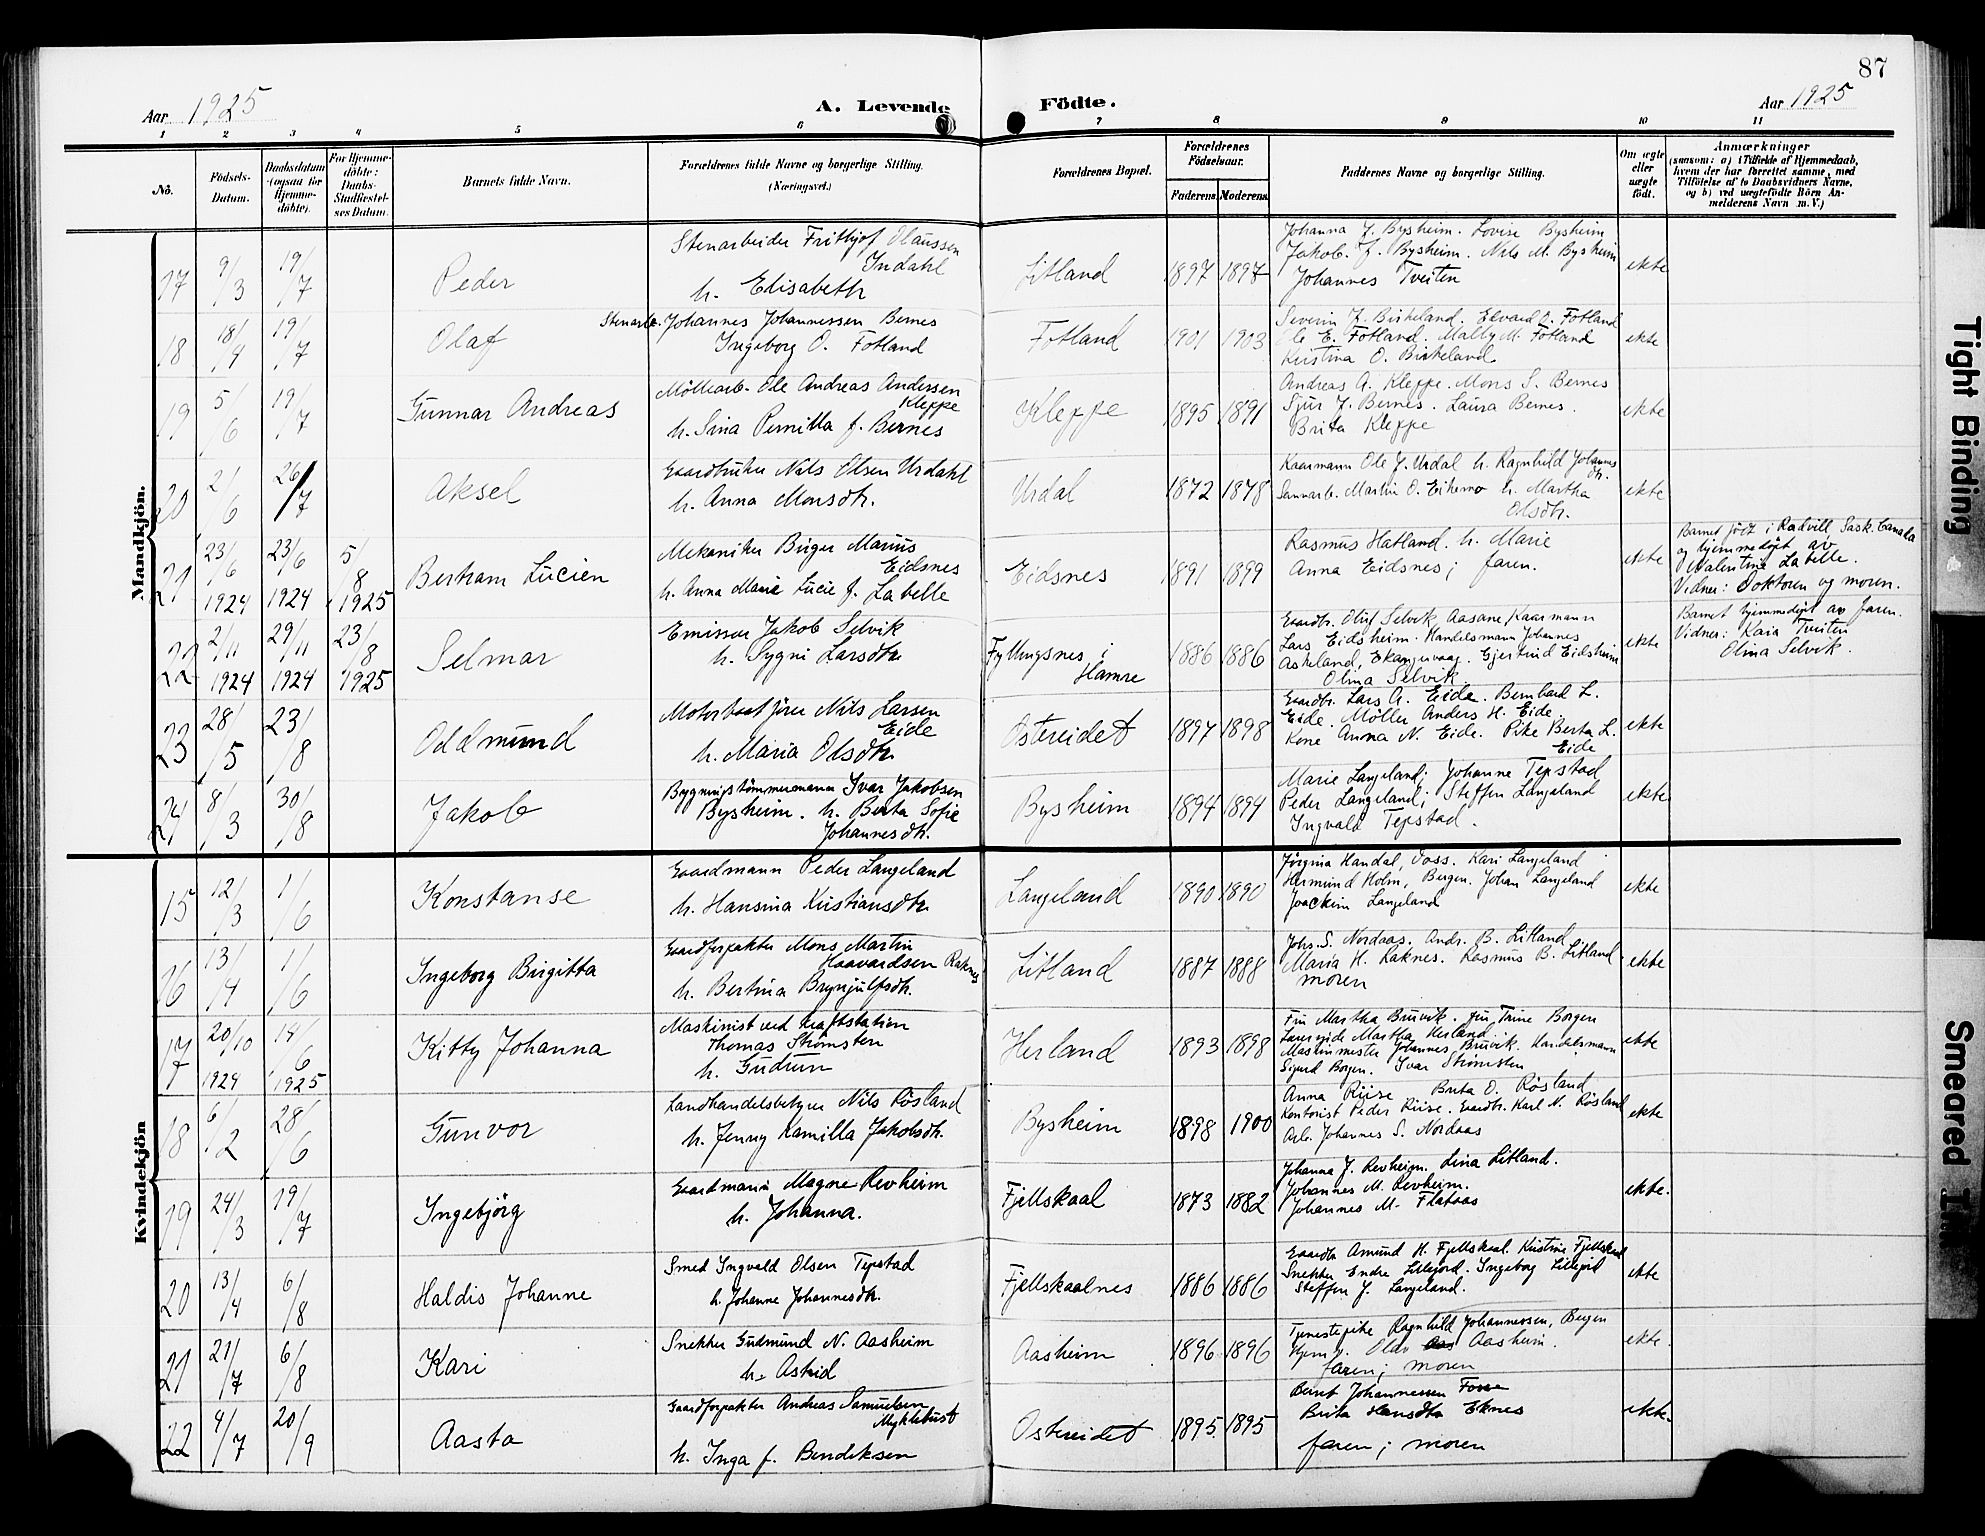 87
Aar 1925
A. Levende
Födte.
Aar 1925
1 2 3 4 5 6 7 8 9 10 11
No.
Födsels-Datum.
Daabsdatum (ogsaa for Hjemme-döbte).
For Hjemme-döbte: Daabs-Stadfæstel-ses Datum.
Barnets fulde Navn.
Forældrenes fulde Navne og borgerlige Stilling.
(Næringsvei.)
Forældrenes Bopæl.
Forældrenes Födselsaar.
Faderens. Moderens.
Faddernes Navne og borgerlige Stilling.
Om ægte eller uægte født.
Anmærkninger
(saasom: a) i Tilfælde af Hjemmedaab,
hvem der har forrettet samme, med
Tilföielse af to Daabsvidners Navne,
og b) ved uægtefödte Börn An-
melderens Navn m. V.)
Mandkjön.
17 9/3 19/7 Peder
Stenarbeider Frithjof Olaussen
Indahl
h. Elisabeth
Litland 1897 1897
Johanna J. Bysheim. Lovise Bysheim
Jakob. J. Bysheim. Nils M. Bysheim
Johannes Tveiten
ekte
18 18/4 19/7 Olaf
Stenarb. Johannes Johannessen Bernes
Ingeborg O. Fotland
Fotland 1901 1903
Severin J. Birkeland. Edvard O. Fotland
Ole E. Fotland. Mally M. Fotland
Kristina O. Birkeland
ekte
19 5/6 19/7 Gunnar Andreas
Möllearb. Ole Andreas Andersen
Kleppe
h. Sina Pernilla f. Bernes
Kleppe 1895 1891
Andreas A. Kleppe. Mons S. Bernes
Sjur J. Bernes. Laura Bernes.
Brita Kleppe
ekte
20 2/6 26/7 Aksel
Gaardbruker Nils Olsen Urdahl
h. Anna Monsdtr.
Urdal 1872 1878
Kaarmann Ole J. Urdal h. Ragnhild Johannes
dtr.
Martin O. Eikemo h. Martha
Olsdtr.
ekte
21 23/6 1924 23/6 1924 5/8 1925 Bertram Lucien
Mekaniker Birger Marius
Eidsnes
h. Anna Marie Lucie f. Labelle
Eidsnes 1891 1899
Rasmus Hatland. h. Marie
Anna Eidsnes; faren.
ekte
Barnet født i Radvill, Sask. Canada
og hjemmedøpt av
Valentine Labelle.
Vidner: Doktoren og moren.
22 2/11 1924 29/11 1924 23/8 1925 Selmar
Emissær Jakob Selvik
h. Sygni Larsdtr.
Fyllingsnes i
Hamre
1886 1886
Gaardbr. Oluf Selvik, Aasane, Kaarmann
Lars Eidsheim. Handelsmann Johannes
Askeland, Eikangervaag. Gjertrud Eidsheim
Olina Selvik
ekte
Barnet hjemmedøpt av faren.
Vidner: Kaia Tveiten
Olina Selvik.
23 28/5 23/8 Oddmund
Motorbaatfører Nils Larsen
Eide
h. Maria Olsdtr.
Ostereidet 1897 1898
Gaardbr. Lars A. Eide. Bernhard L.
Eide. Möller Anders H. Eide.
Kone Anna N. Eide. Pike Berta L.
Eide
ekte
24 8/3 30/8 Jakob
Bygningstömmermann Ivar Jakobsen
Bysheim. h. Berta Sofie
Johannesdtr.
Bysheim 1894 1894
Marie Langeland; Johanne Tepstad
Peder Langeland; Steffen Langeland
Ingvald Tepstad.
ekte
Kvindekjön
15 12/3 1/6 Konstanse
Gaardmann Peder Langeland
h. Hansina Kristiansdtr.
Langeland 1890 1890
Jörgina Handal, Voss. Kari Langeland
Hermund Holm, Bergen. Johan Langeland
Joackim Langeland
ekte
16 13/4 1/6 Ingeborg Birgitta
Gaardforpakter Mons Martin
Haavardsen Raknes
h. Bertina Brynjulfsdtr.
Litland 1887 1888
Johs. S. Nordaas. Andr. B. Litland
Maria H. Raknes. Rasmus B. Litland
moren
ekte
17 20/10 1924 14/6 1925 Kitty Johanna
Maskinist ved kraftstation
Thomas Strömsten
h. Gudrun
Herland 1893 1898
Fru Martha Bruvik. Fru Trine Borgen
Martha Herland.
Maskinmester Johannes Bruvik. Handelsmann
Sigurd Borgen. Ivar Strömsten
ekte
18 6/2 28/6 Gunvor
Landhandelsbetyrer Nils Røsland
h. Jenny Kamilla Jakobsdtr.
Bysheim 1898 1900
Anna Riise Brita O. Røsland
Kontorist Peder Riise. Gaardbr. Karl N. Røsland
Arb. Johannes S. Nordaas
ekte
19 24/3 19/7 Ingebjörg
Gaardmann Magne Revheim
h. Johanna.
Fjellskaal 1873 1882
Johanna J. Revheim. Lina Litland.
Johannes M. Revheim.
Johannes M. Flataas
ekte.
20 13/4 6/8 Haldis Johanne
Smed Ingvald Olsen Tepstad
h. Johanne Johannesdtr.
Fjellskaalnes 1886 1886
Gaardbr. Amund H. Fjellskaal. Kristine Fjellskaal
Snekker Endre Lillejord. Ingeborg Lillejord
Steffen J. Langeland.
ekte
21 21/7 6/8 Kari
Snekker Gudmund N. Aasheim
h. Astrid
Aasheim 1896 1896
Tjenestepike Ragnhild Johannessen, Bergen
Olav Aasheim.
faren; moren
ekte.
22 4/7 20/9 Aasta
Gaardforpakter Andreas Samuelsen
Myklebust
h. Inga f. Bendiksen
Ostereidet 1895 1895
Bernt Johannessen Fosse
Brita Hansdtr Eknes
faren; moren
ekte.
Tight Binding
Smeared Ink